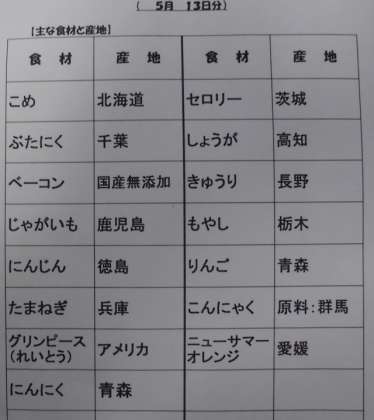 ( 5月 13日分)
[主な食材と産地]
食 材 産 地 食 材 産 地
こめ 北海道 セロリー 茨城
ぶたにく 千葉 しょうが 高知
ベーコン 国産無添加 きゅうり 長野
じゃがいも 鹿児島 もやし 栃木
にんじん 徳島 りんご 青森
たまねぎ 兵庫 こんにゃく 原料:群馬
グリンピース
(れいとう) アメリカ ニューサマー
オレンジ 愛媛
にんにく 青森